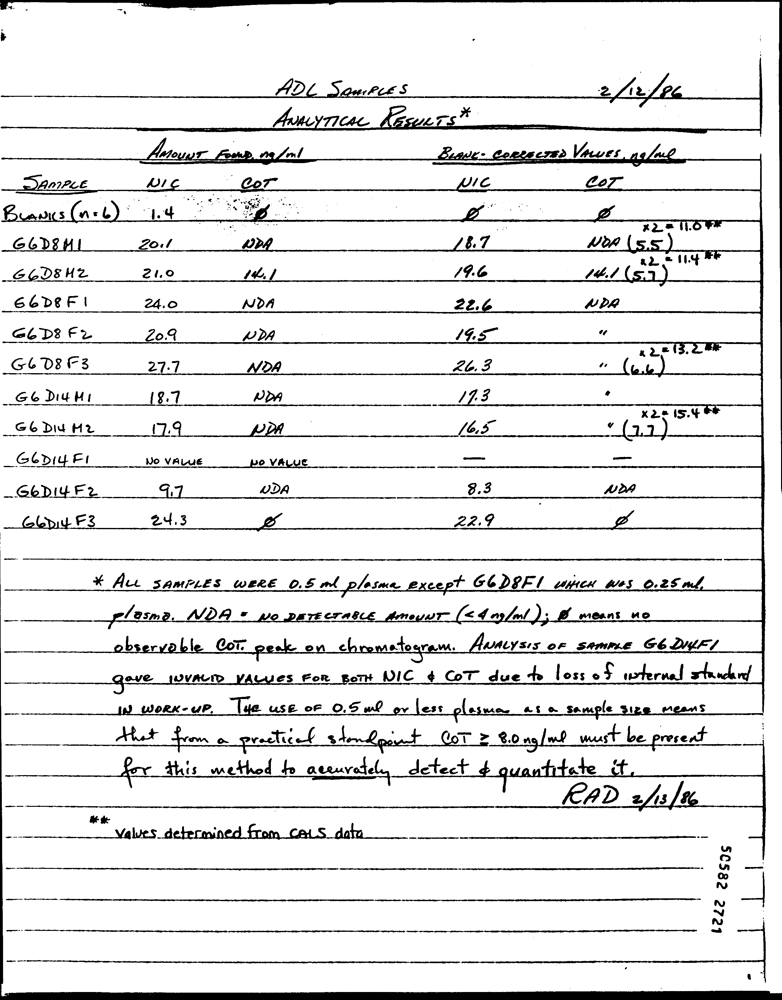 ADL SAMPLES 2/12/86
ANALYTICAL RESULTS*
AMOUNT FOUND, ng/ml BLANK-CORRECTED VALUES, ng/ml
SAMPLE NIC COT NIC COT
BLANKS (n=6) 1.4 Ø Ø Ø
x2 = 11.0**
G6D8M1 20.1 NDA 18.7 NDA (5.5)
x2 = 11.4**
G6D8M2 21.0 14.1 19.6 14.1 (5.7)
G6D8F1 24.0 NDA 22.6 NDA
G6D8F2 20.9 NDA 19.5 "
x2 = 13.2**
G6D8F3 27.7 NDA 26.3 " (6.6)
G6D14M1 18.7 NDA 17.3 "
x2 = 15.4**
G6D14M2 17.9 NDA 16.5 " (7.7)
G6D14F1 NO VALUE NO VALUE — —
G6D14F2 9.7 NDA 8.3 NDA
G6D14F3 24.3 Ø 22.9 Ø
* ALL SAMPLES WERE 0.5 ml plasma except G6D8F1 WHICH WAS 0.25 ml.
plasma. NDA = NO DETECTABLE AMOUNT (<4 ng/ml); Ø means no
observable COT. peak on chromatogram. ANALYSIS OF SAMPLE G6D14F1
gave INVALID VALUES FOR BOTH NIC & COT due to loss of internal standard
IN WORK-UP. THE USE OF 0.5 ml or less plasma as a sample size means
that from a practical standpoint COT ≥ 8.0 ng/ml must be present
for this method to accurately detect & quantitate it.
RAD 2/13/86
** values determined from CALS data
50582 2721